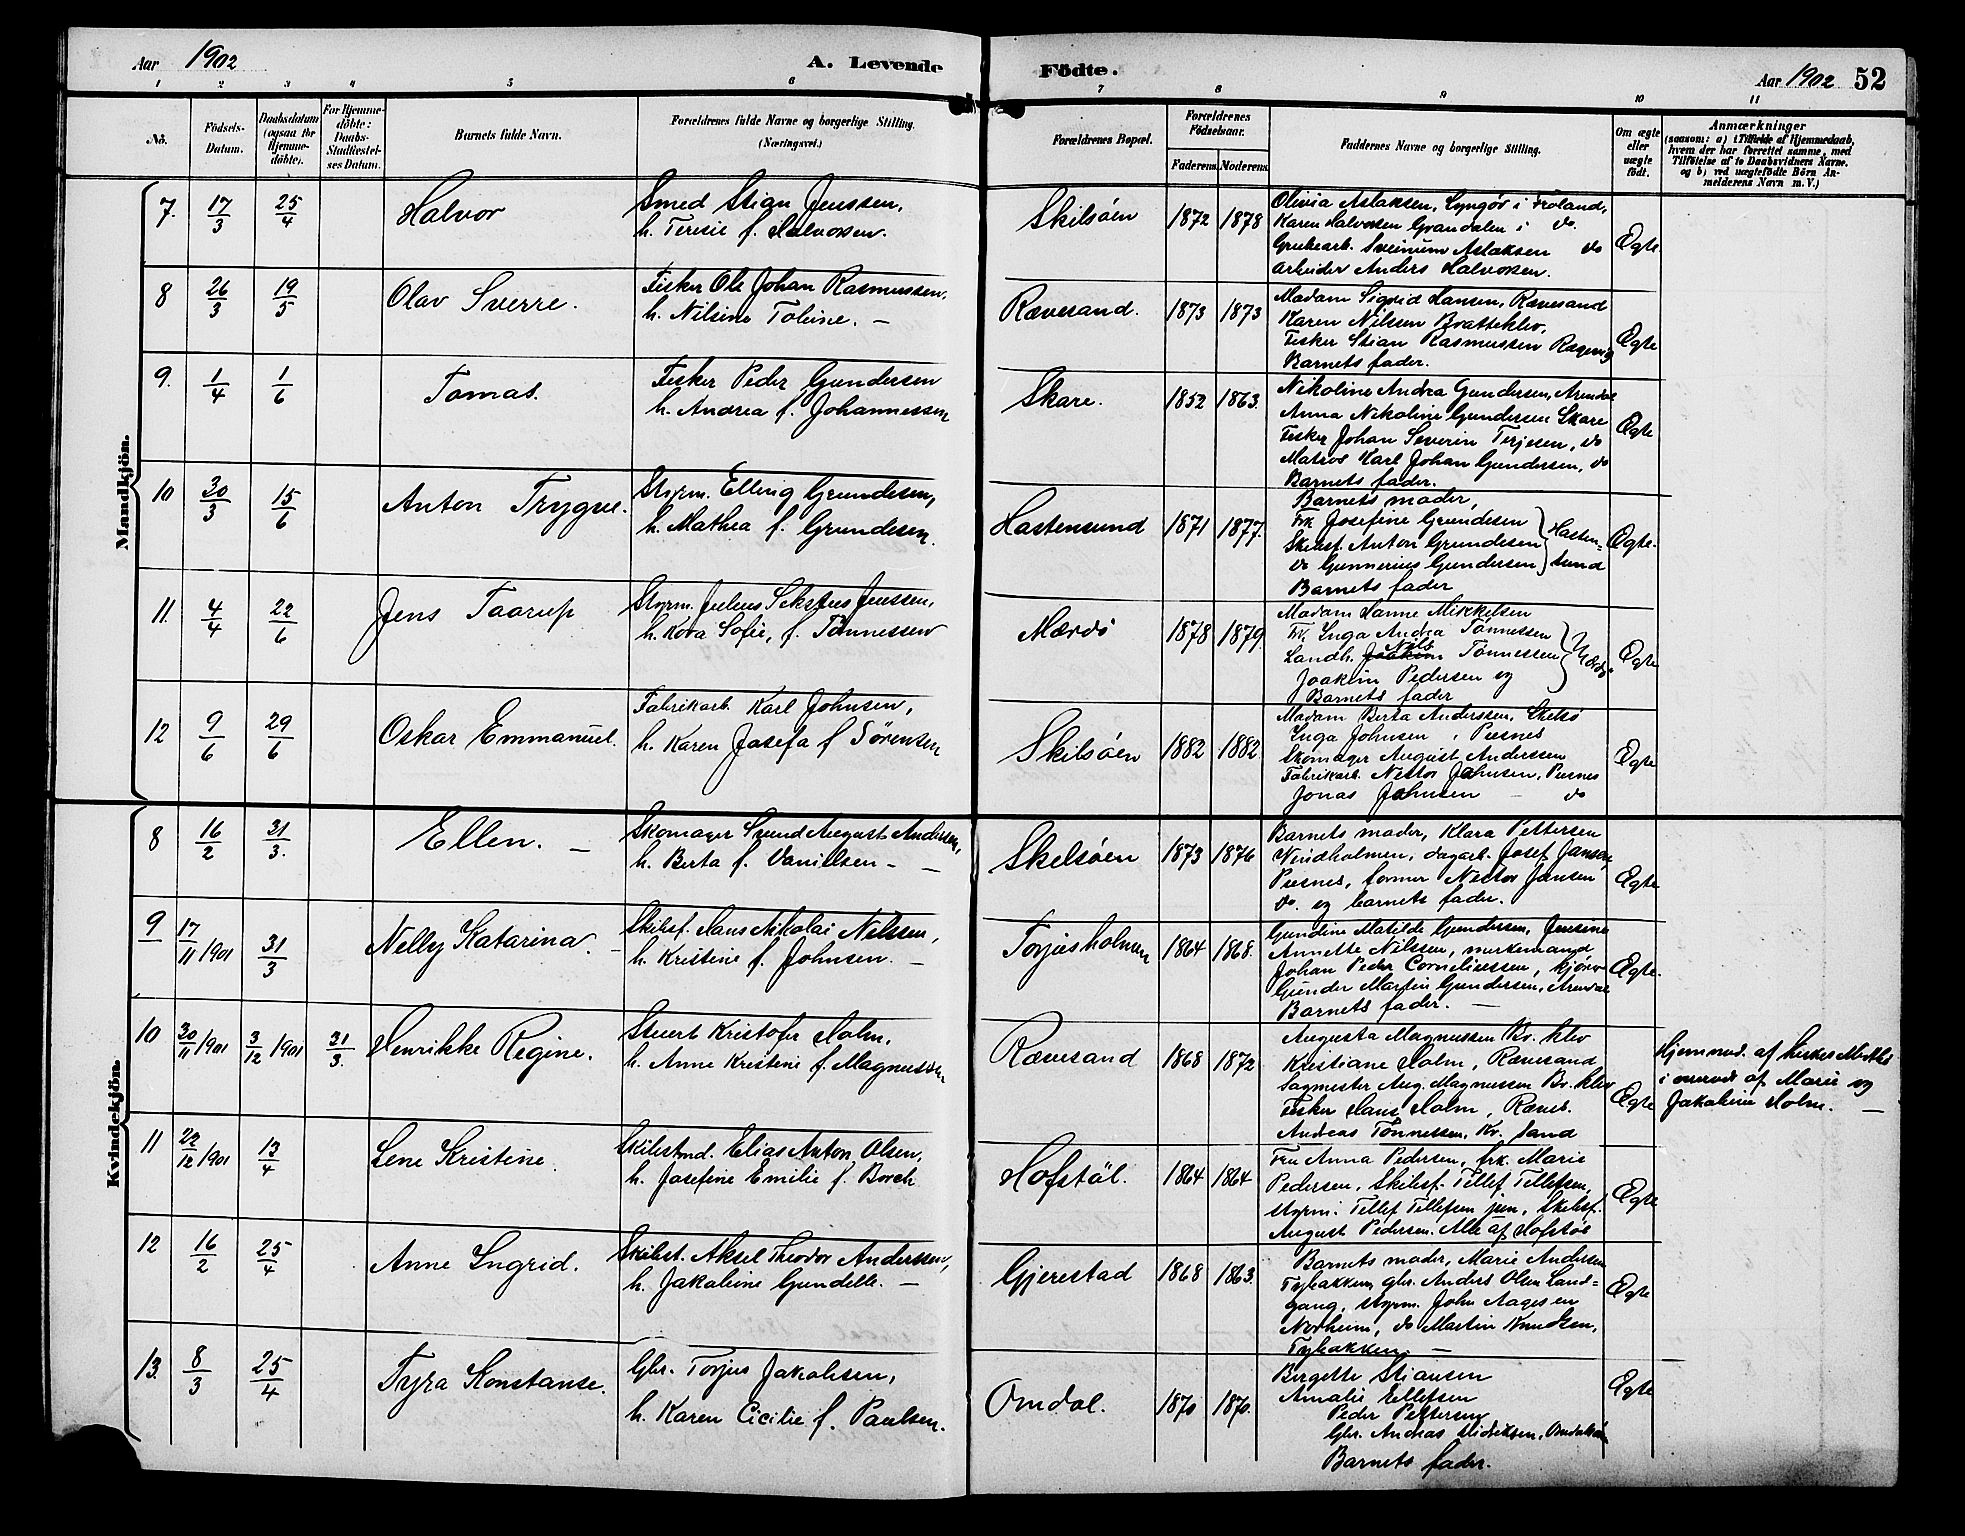 Aar 1902
A. Levende
Födte.
Aar 1902 52
1 2 3 4 5 6 7 8 9 10 11
No.
Födsels-Datum.
Daabsdatum (ogsaa for Hjemmedöbte).
For Hjemmedöbte: Daabs-Stadfæstelses Datum.
Barnets fulde Navn.
Forældrenes fulde Navne og borgerlige Stilling. (Næringsvei.)
Forældrenes Bopæl.
Forældrenes Födselsaar.
Faderens. Moderens.
Faddernes Navne og borgerlige Stilling.
Om ægte eller uægte födt.
Anmærkninger
(saasom: a) i Tilfælde af Hjemmedaab,
hvem der har forrettet samme, med
Tilföielse af to Daabsvidners Navne.
og b) ved uægtefödte Börn An-
melderens Navn m. V.)
Mandkjön.
7. 17/3 25/4 Halvor
Smed Stian Jenssen,
h. Teresie f. Halvorsen.
Skilsöen 1872 1878
Olivia Aslaksen, Lyngör i Fröland,
Karen Halvorsen Grandalen i do.
Grubearb. Sveinum Aslaksen do
Arbeider Anders Halvorsen.
Ægte
8 26/3 19/5 Olav Sverre.
Fisker Ole Johan Rasmussen,
h. Nilsine Toline. —
Rævesand. 1873 1873
Madam Sigrid Hansen, Rævesand
Karen Nilssen Bratteklev,
Fisker Stian Rasmussen
Barnets fader.
Ægte
9. 1/4 1/6 Tomas.
Fisker Peder Gundersen
h. Andrea f. Johannessen
Skare. 1852 1863.
Nikoline Andrea Gundersen, Arendal
Anna Nikoline Gundersen Skare
Fisker Johan Severin Terjesen, do
Matros Karl Johan Gundersen, do
Barnets fader.
Ægte
10 30/3 15/6 Anton Trygve.
Styrm. Elling Grundesen,
h. Mathea f. Grundesen.
Hastensund 1871 1877.
Barnets moder,
Frk Josefine Grundesen
Skibsf. Anton Grundesen
do Gunnerius Gundersen
Barnets fader
Hasten=
sund
Ægte.
11. 4/4 22/6 Jens Taarup
Styrm. Julius Sekstus Jenssen,
h. Kora Sofie, f. Tönnessen
Mærdö 1878 1879.
Madam Hanne Mikkelsen
Fr. Inga Andrea Tönnessen
Landh. Nils Tönnessen
Joakim Pedersen og
Barnets fader
Mærdö
Ægte
12 9/6 29/6 Oskar Emmanuel.
Fabrikarb. Karl Johnsen,
h. Karen Josefa f Sörensen
Skilsöen 1882 1882
Madam Berta Anderssen, Skilsö
Inga Johnsen, Pusnes
Skomager August Anderssen
Fabrikarb. Nestor Johnsen, Pusnes
Jonas Johnsen — do
Ægte
Kvindekjön.
8 16/2 31/3. Ellen. —
Skomager Svend August Andersen,
h. Berta f. Danielsen — —
Skilsöen 1873 1876
Barnets moder, Klara Pettersen
Vindholmen, dagarb. Josef Jansen,
Pusnes, former Nestor Jansen
do. og barnets fader.
Ægte
9 17/11 1901 31/3 Nelly Katarina. —
Skibsf. Hans Nikolai Nilssen,
h. Kristine f. Johnsen. —
Torjusholmen 1864 1868.
Gundine Matilde Gundersen, Jensine
Annette Nilssen, merkemand
Johan Peder Corneliussen,
Gunder Martin Gundersen, Arendal
Barnets fader. —
Ægte.
10 30/11 1901 3/12 1901 31/3. Henrikke Regine.
Stuert Kristofer Holm,
h. Anne Kristine f. Magnussen
Rævesand 1868 1872
Augusta Magnussen Br. klev
Kristiane Holm, Rævesand
Sagmester Aug. Magnussen Br. klev
Fisker Hans Holm, Ræves.
Andreas Tönnessen, Kr. sand
Ægte
Hjemmed. af
i overvær af Marie og
Jakobine Holm. —
11 22/12 1901 13/4 Lene Kristine.
Skibstmd. Elias Anton Olsen,
h. Josefine Emilie f. Borch
Hofstöl. 1864 1864
Fru Anna Pedersen, frk. Marie
Pedersen, Skibsf. Tellef Tellefsen,
styrm. Tellef Tellefsen jun, Skibsf.
August Pedersen. Alle af Hofstöl
Ægte
12 16/2 25/4 Anne Ingrid.
Skibst. Aksel Theodor Anderssen,
h. Jakobine Gundelle. —
Gjerestad 1868 1863.
Barnets moder, Marie Andersen
Tybakken, gbr. Anders Olsen Land=
gang, styrm. John Aagesen
Norheim, do Martin Knudsen,
Tybakken. —
Ægte
13. 8/3 25/4 Tyra Konstanse.
Gbr. Torjus Jakobsen,
h. Karen Cicilie f. Paulsen.
Omdal. 1870 1870.
Bergette Stiansen
Amalie Ellefsen
Peder Pettersen
Gbr. Andreas
Barnets fader.
Ægte